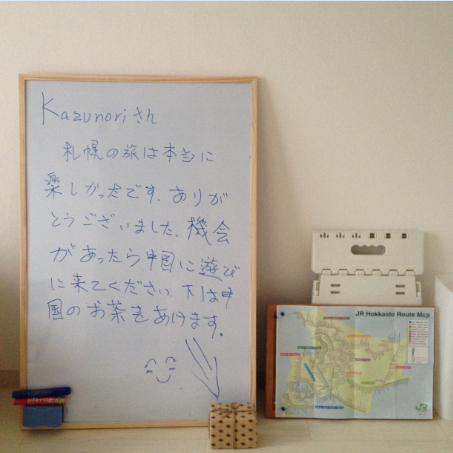 Kazunoriさん
札幌の旅は本当に
楽しかったです.ありが
とうございました.機会
があったら中国に遊び
に来てください.下は中
国のお茶をあげます.
JR Hokkaido Route Map
JR